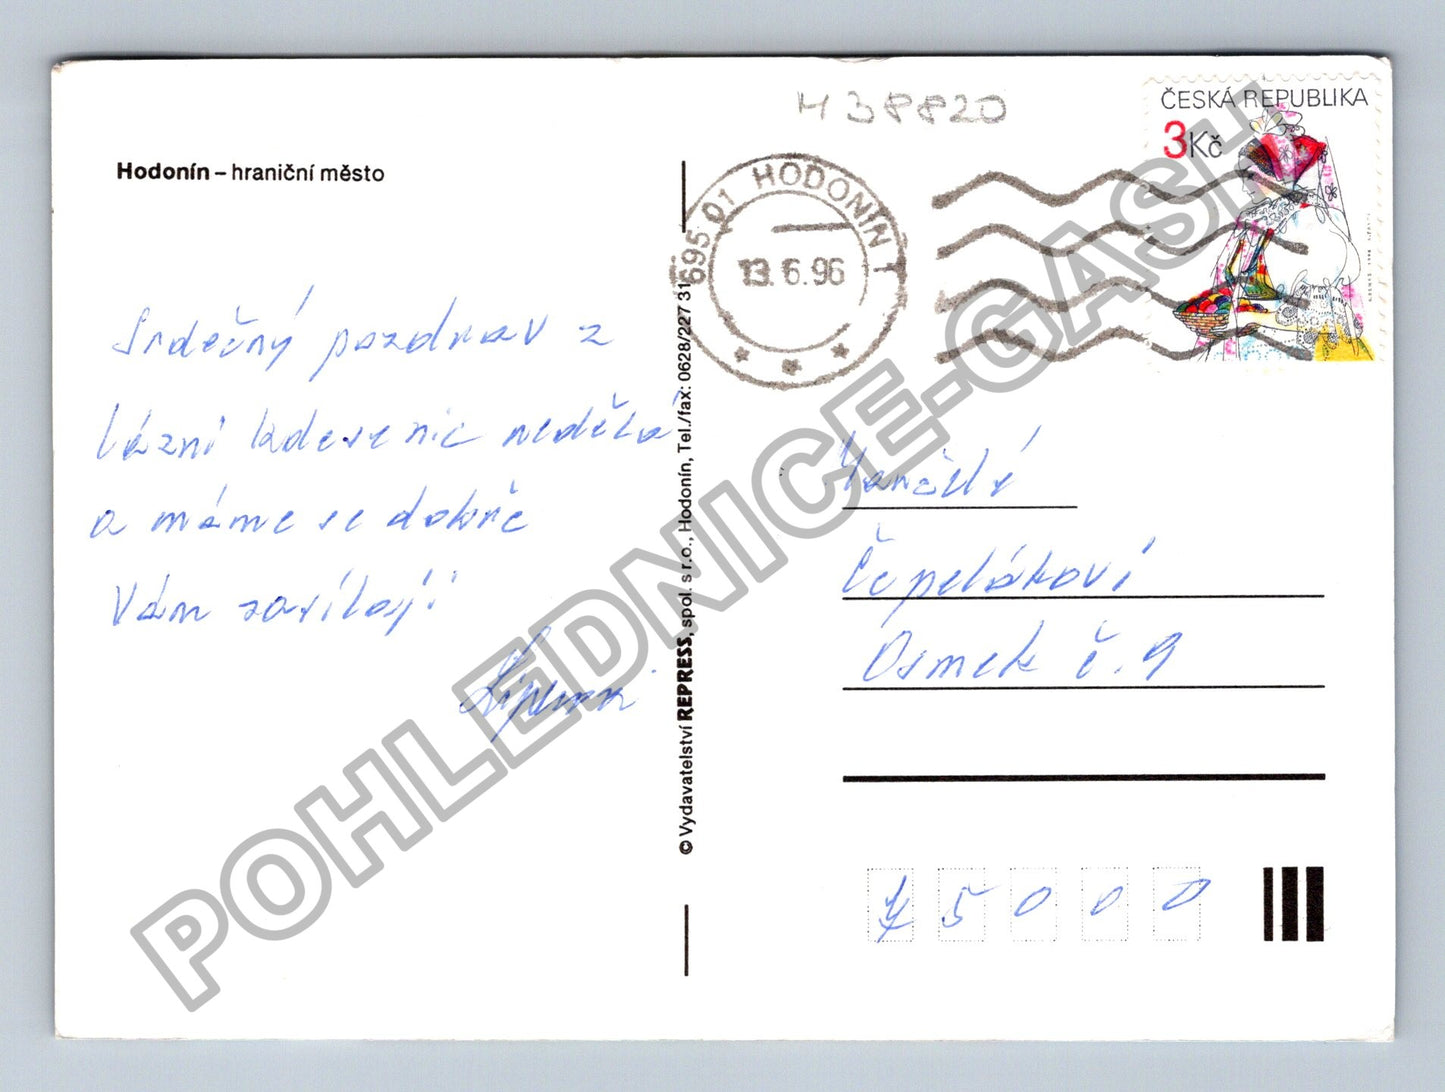 H 38820
ČESKÁ REPUBLIKA
3Kč
Hodonín – hraniční město
695 01 HODONÍN 1
13.6.96
Srdečný pozdrav z
lázní kde se nic nedělá
a máme se dobře
Vám zasílají
© Vydavatelství REPRESS, spol. s r.o., Hodonín, Tel./fax: 0628/227 31
Čepelákovi
Osmek č. 9
75000
POHLEDNICE-GASH